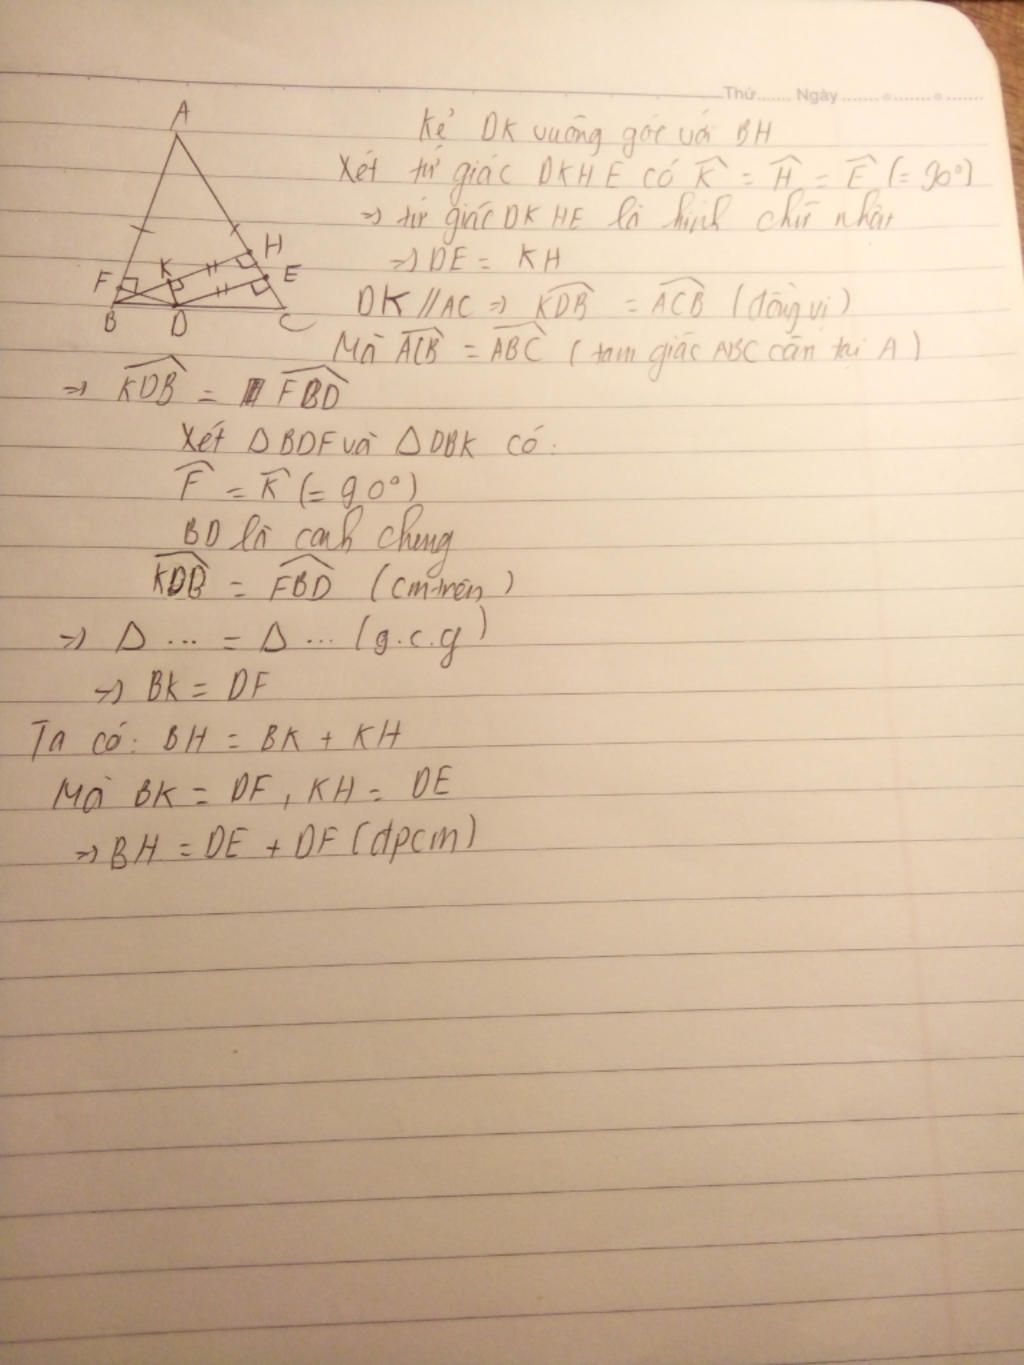 Thứ....... Ngày.................
A
H
F
K
E
B
D
C
Kẻ DK vuông góc với BH
Xét tứ giác DKHE có K̂ = Ĥ = Ê (= 90°)
=> tứ giác DKHE là hình chữ nhật
=> DE = KH
DK // AC => K͡DB = A͡CB (đồng vị)
Mà A͡CB = A͡BC (tam giác ABC cân tại A)
=> K͡DB = F͡BD
Xét Δ BDF và Δ DBK có:
F̂ = K̂ (= 90°)
BD là cạnh chung
K͡DB = F͡BD (cm trên)
=> Δ ... = Δ ... (g.c.g)
=> BK = DF
Ta có: BH = BK + KH
Mà BK = DF, KH = DE
=> BH = DE + DF (đpcm)